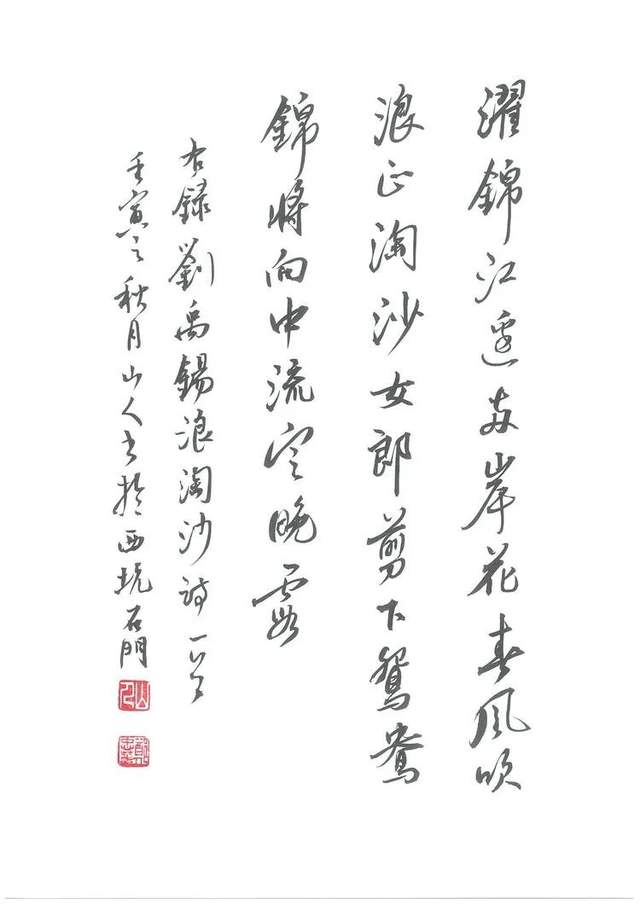 濯錦江邊兩岸花春風吹
浪正淘沙女郎剪下鴛鴦
錦將向中流定晚霞
右錄劉禹錫浪淘沙詩一首
壬寅之秋月山人書於西坑石門
山人